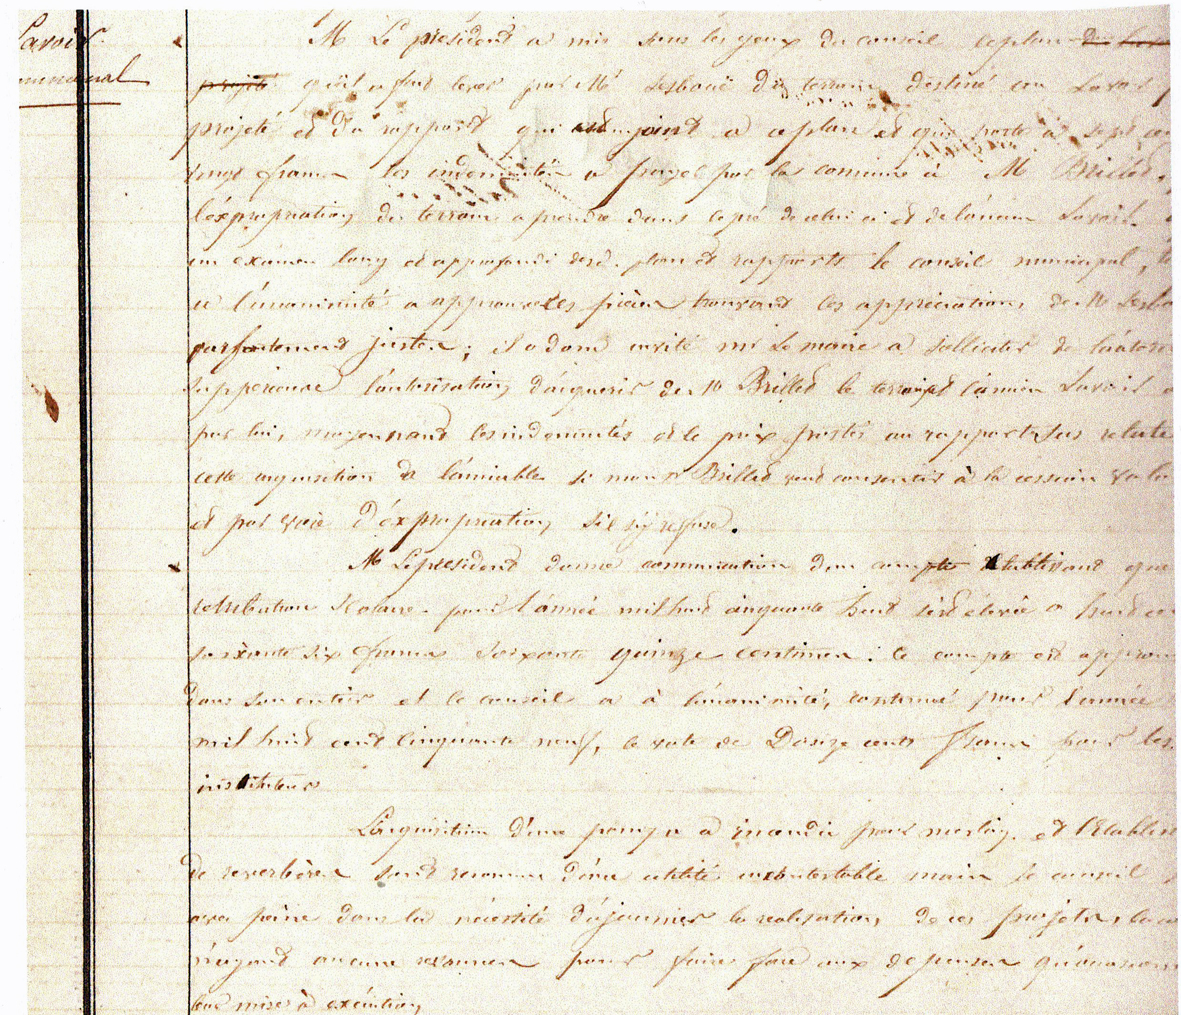 Lavoir
communal
M Le président a mis sous les yeux du conseil le plan du
projeté qu'il a fait lever par Mr Lesboué du terrain destiné au Lavoir
projeté et du rapport qui est joint a ce plan et qui porte à sept cent
vingt francs les indemnités a payer par la commune à M Brillet,
l'éxpropriation du terrain a prendre dans le pré de celui ci et de l'ancien Lavoir.
un examen long et approfondi desd. plan et rapports le conseil municipal,
a l'unanimité a approuvé les pièces trouvant les appréciations de M
parfaitement justes; il a donc invité mr Le maire a solliciter de l'autorité
Supperieure l'autorisation d'aquerir de M Brillet le terrain et l'ancien Lavoir
par lui, moyennant les indemnités et le prix portés au rapport sus relaté
cette aquisition à l'amiable si monsr Brillet veut consentir à la cession
et par voie d'éxpropriation s'il s'y refuse.
M Le président donne communication d'un compte établissant que
retribution scolaire pour l'année mil huit cinquante huit s'est élevée a huit cent
soixante six francs soixante quinze centimes: ce compte est approuvé
dans son entier et le conseil a à l'unanimité, continué pour l'année
mil huit cent cinquante neuf, le vote de Dosize cents francs pour les
instituteurs
L'aquisition d'une pompe a incendie pour et l'Etablis
de reverbères sont reconnus d'une utilité incontestable mais le conseil
avec peine dans la nécessité d'ajourner la realisation de ces projets,
n'ayant aucune ressource pour faire face aux depenses qu'occasion
leur mise à exécution